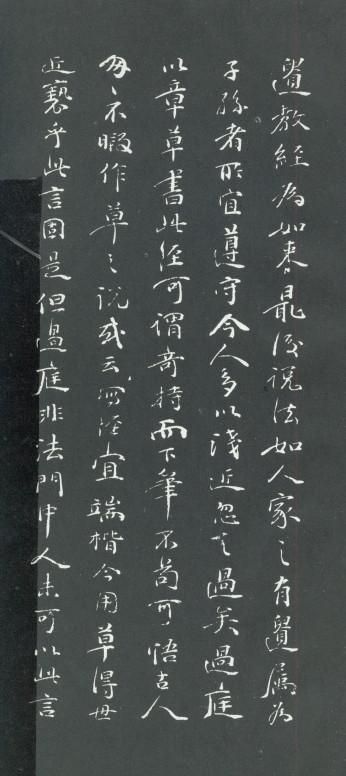 遺教經為如來最後說法如人家之有遺屬為
子孫者所宜遵守今人多以淺近忽之過矣過庭
以章草書此經可謂奇特而下筆不苟可悟古人
匆〻不暇作草之說或云寫經宜端楷今用草得毋
近褻乎此言固是但過庭非法門中人未可以此言